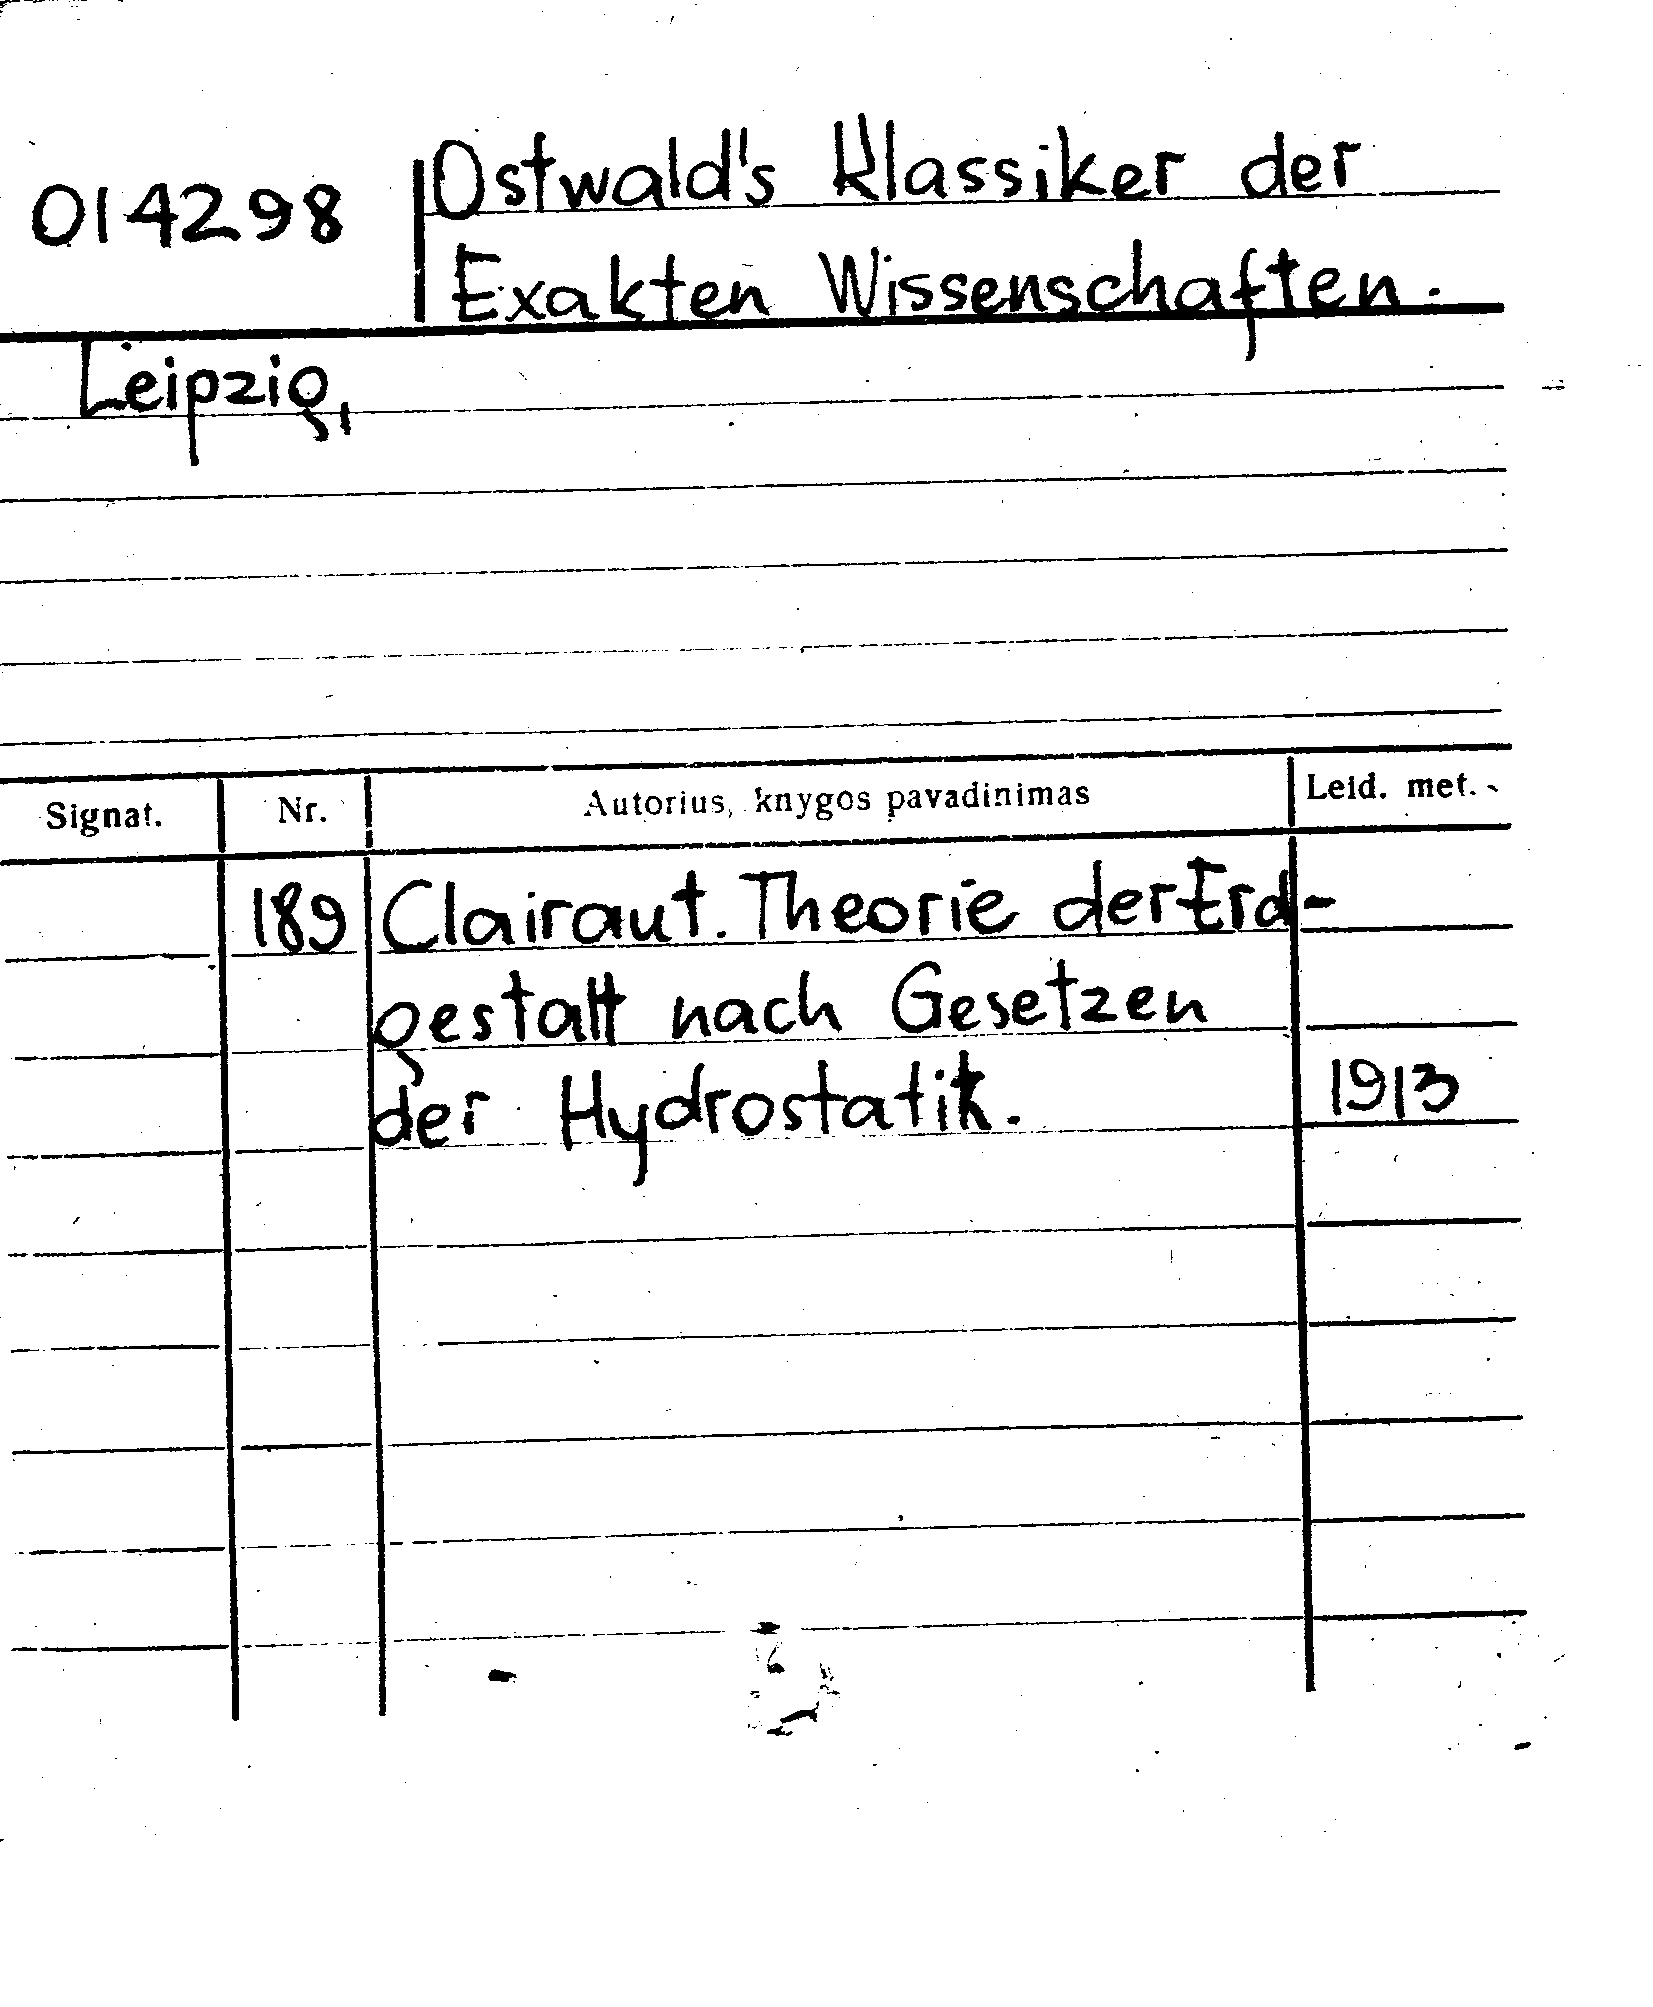 014298 Ostwald's Klassiker der
Exakten Wissenschaften.
Leipzig,
Signat. Nr. Autorius, knygos pavadinimas Leid. met.
189 Clairaut. Theorie der Erd-
gestalt nach Gesetzen
der Hydrostatik. 1913